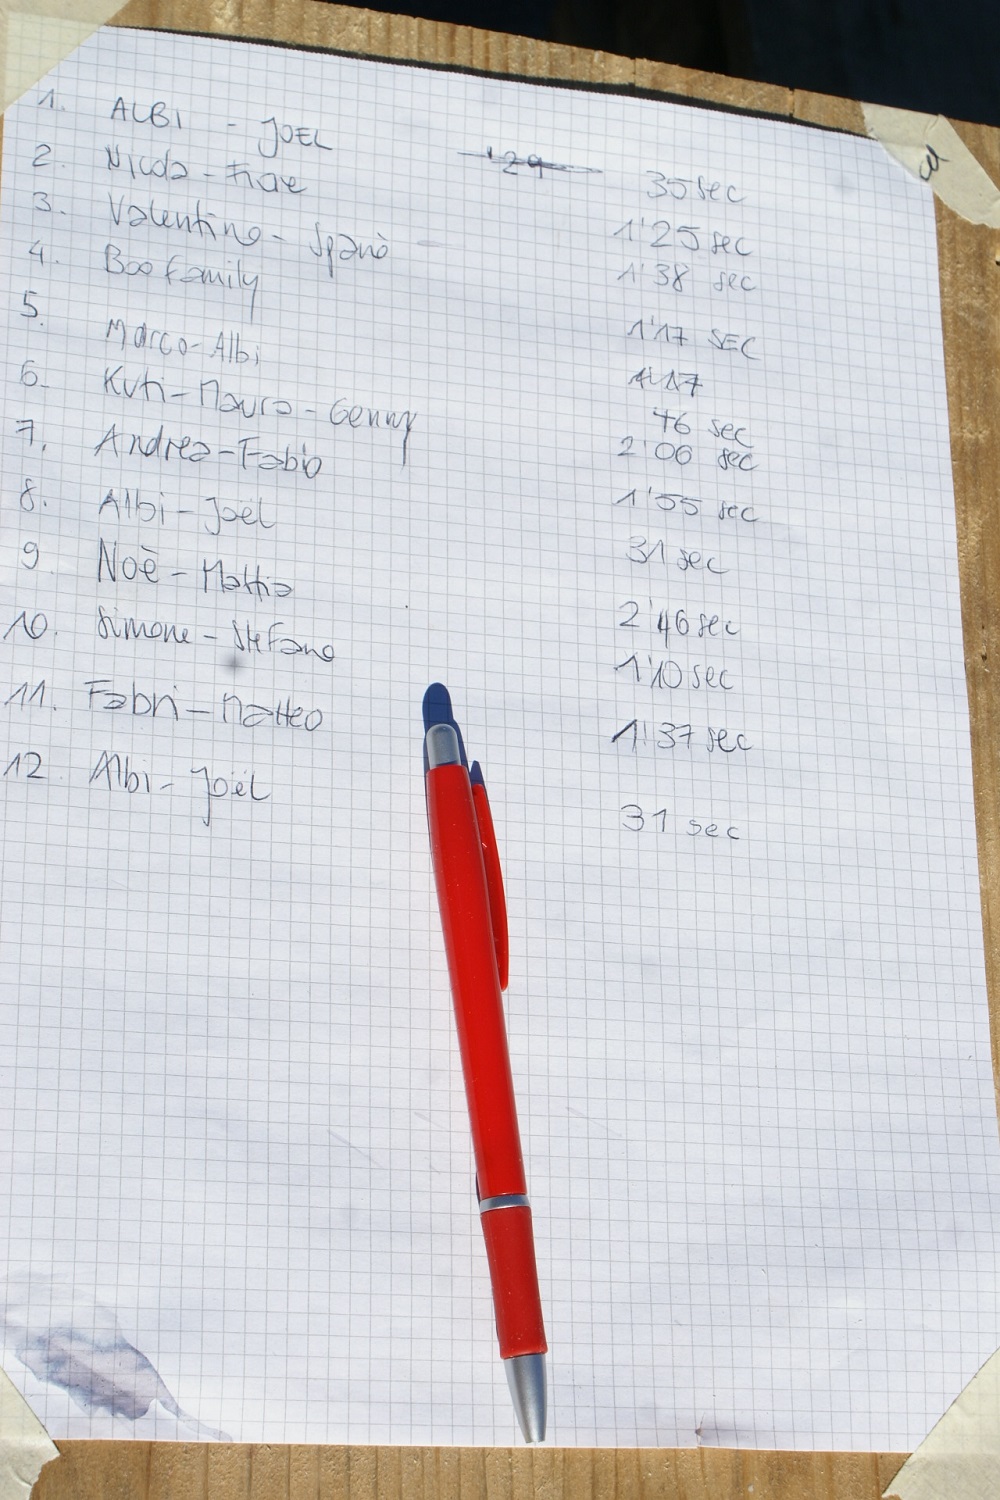 1. ALBI - JOEL 35 sec
2. Nicola - 1'25 sec
3. Valentino - Spanò 1'38 sec
4. Boo family 1'17 SEC
5. Marco - Albi 46 sec
6. Kuti - Mauro - Genny 2'00 sec
7. Andrea - Fabio 1'55 sec
8. Albi - Joël 31 sec
9. Noè - Mattia 2'46 sec
10. Simone - Stefano 1'10 sec
11. Fabri - Matteo 1'37 sec
12 Albi - Joël 31 sec